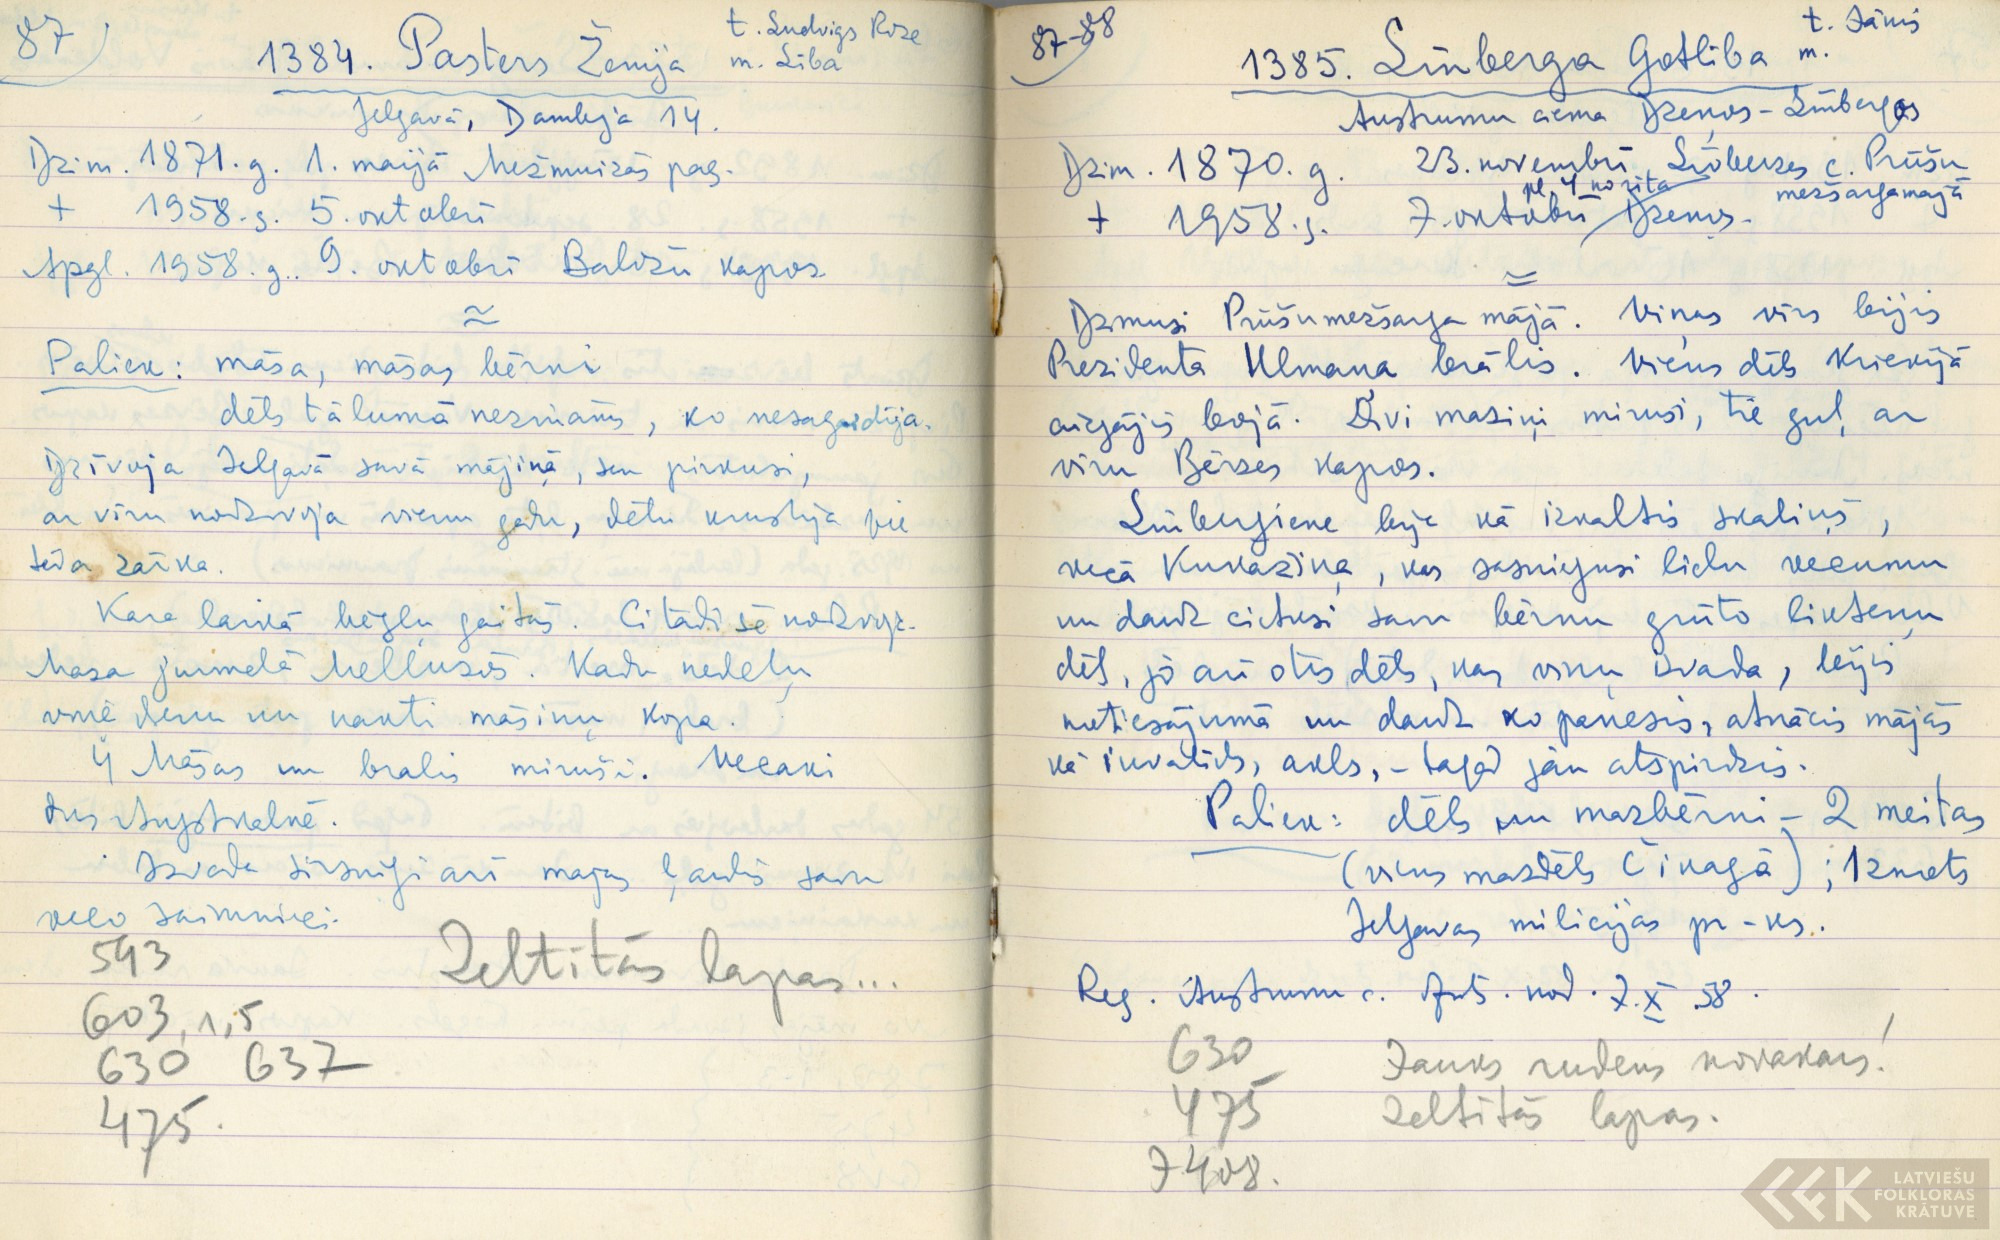 87
1384. Pasters Ženija
t. Ludvigs Roze
m. Lība
Jelgavā, Dambja 14.
Dzim. 1871. g. 1. maijā Mežmuižās pag.
+ 1958. g. 5. oktobrī
Apgl. 1958. g. 9. oktobrī Baložu kapos
Paliek: māsa, māsas bērni
dēls tālumā nezināms, ko nesagaidīja.
Dzīvoja Jelgavā savā mājiņā, sen pirkusi,
ar vīru nodzīvoja vienu gadu, dēlu kristīja pie
tēva zārka.
Kara laikā bēgļu gaitās. Citādi šē nodzīvoj.
Māsa jūrmalā Mellužos. Kādu nedēļu
dienu un nakti māsiņu kopa.
4 Māsas un brālis miruši. Vecāki
dus Augstkalnē.
Izvada sirsnīgi arī mājas ļaudis savu
veco saimnieci.
543
603, 1, 5
630 637
475.
Zeltītās lapas...
87-88
1385. Līnberga Gotlība
t. Jānis
m.
Austrumu ciema Dzeņos - Līnbergos
Dzim. 1870. g. 23. novembrī Līvberzes c. Prūšu
mežsarga mājā
pl. 4 no rīta
+ 1958. g. 7. oktobrī Dzeņos.
Dzimusi Prūšu mežsarga mājā. Viņas vīrs bijis
Prezidenta Ulmaņa brālis. Viens dēls Krievijā
aizgājis bojā. Divi maziņi miruši, tie guļ ar
vīru Bērzes kapos.
Līnbergiene bija kā izkaltis skaliņš,
vecā Kukaziņa, kas sasniegusi lielu vecumu
un daudz cietusi savu bērnu grūto likteņu
dēļ, jo arī otrs dēls, kas viņu izvada, bijis
notiesājumā un daudz ko panesis, atnācis mājās
kā invalīds, akls, - tagad jau atspirdzis.
Paliek: dēls un mazbērni - 2 meitas
(viens mazdēls Čikagā); 1 znots
Jelgavas milicijas pr-ks.
Reg. Austrumu c. 7. X 58.
630
475
7408.
Jauks rudens novakars!
Zeltītās lapas.
LATVIEŠU
FOLKLORAS
KRĀTUVE